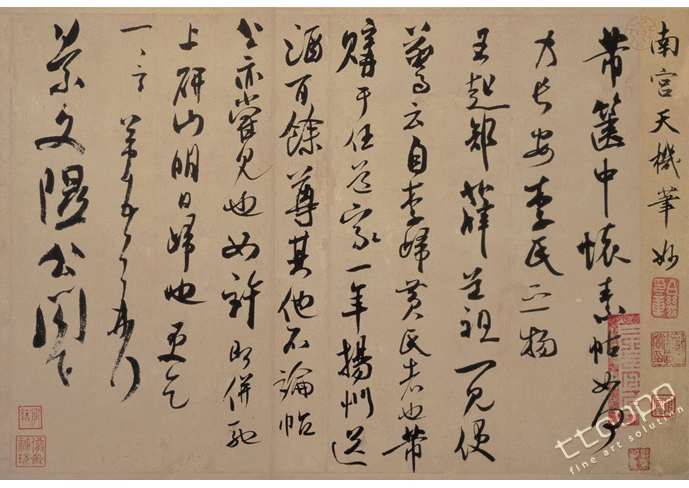 南宮天機筆妙
芾篋中懷素帖如何
乃長安李氏之物
王起郎薛道祖一見便
驚云自李歸黃氏者也芾
購于任道家一年揚州送
酒百餘尊其他不論帖
公亦嘗見也如許即併馳
上研山明日歸也更乞
一言芾頓首再拜
景文隰公閣下
fine art solution